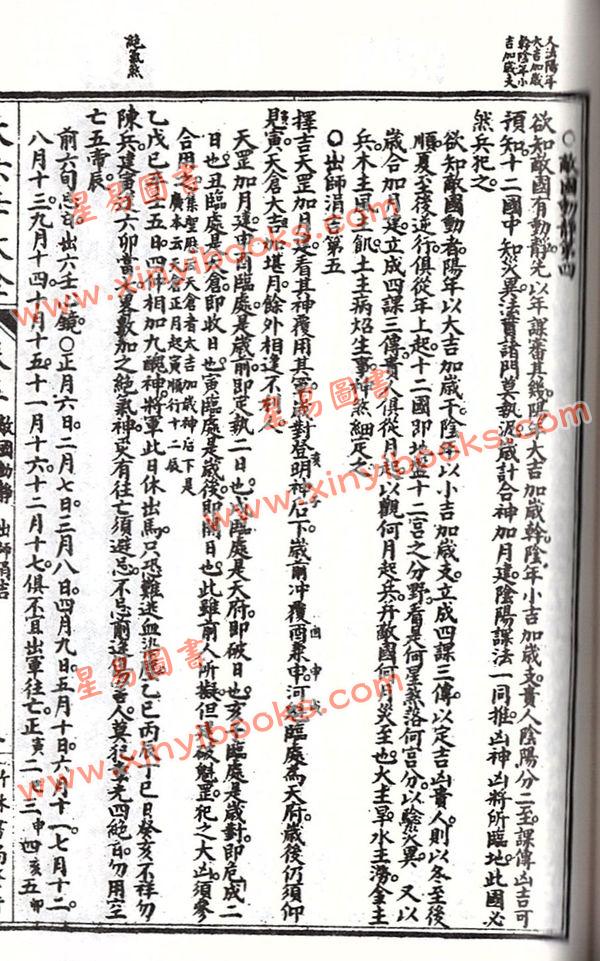 陽年
大吉加歲
幹陰年小
吉加歲支
絕氣煞
○敵國動靜第四
欲知敵國有動靜先以年課審其幾陽年大吉加歲幹陰年小吉加歲支貴人陰陽分二至課傳凶吉可
預知十二國中知災異法貴諸門莫執泥歲計合神加月建陰陽課法一同推凶神凶將所臨地此國必
然兵犯之
欲知敵國動者陽年以大吉加歲干陰年以小吉加歲支立成四課三傳以定吉凶貴人則以冬至後
順夏至後逆行俱從年上起十二國即地盤十二宮之分野看是何星煞落何宮分以驗災異又以
歲合加月建立成四課三傳貴人俱從月起以觀何月起兵并敵國何月災至也火主旱水主澇金主
兵木主風土飢土主病生事神煞細定之
○出師涓吉第五
擇吉天罡加月建看其神覆用其歲對登明神后下歲前沖覆酉兼申河魁臨處為天府歲後仍須仰
見寅天倉大吉加堪月餘外相逢不利
天罡加月建申酉臨處是歲前即定執二日也戌臨處是天府即破日也亥子臨處是歲對即危成二
日也丑臨處是天倉即收日也寅臨處是歲後即開日也此雖前人所擬但建破魁罡犯之大凶須參
合用之
廣本云天倉正月起寅順行十二辰
乙戊己辛壬五日四仲相加九醜神將軍此日休出馬只恐難逃血乙巳丙辰丁巳日癸亥不祥勿
陳兵建寅六卯當絕氣神更有往亡須避忌不忌前途傷四絕勿用
亡五帝辰
前六旬忌出六壬鏡○正月六日二月七日三月八日四月九日五月十日六月十一七月十二
八月十三九月十四十月十五十一月十六十二月十七俱不宜出軍往亡正寅二巳三申四亥五卯
敵國動靜 出師涓吉